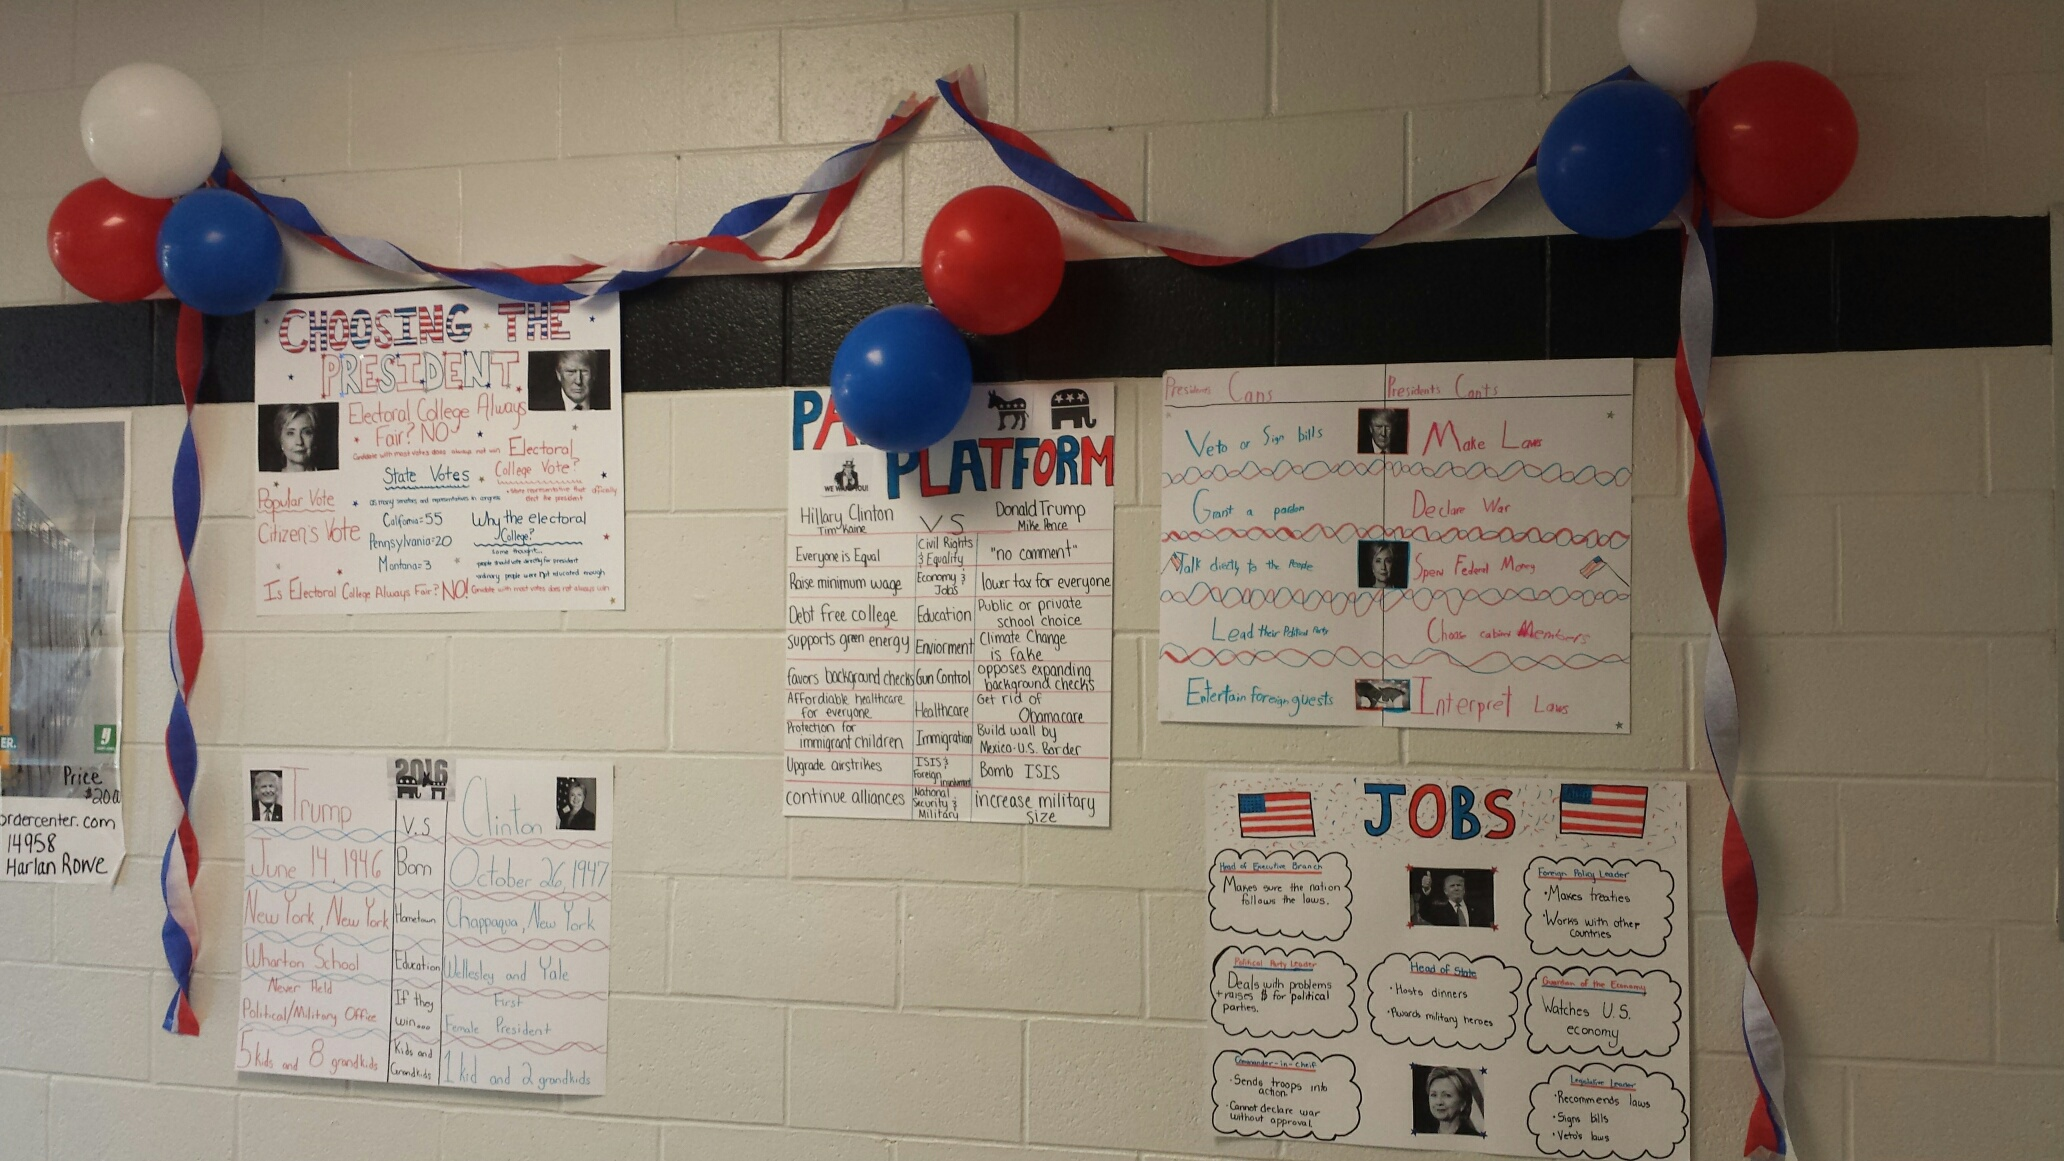 CHOOSING THE
PRESIDENT
Electoral College Always
Fair? NO
Candidate with most votes does always not win
Electoral
College Vote?
• State representative that officially
elect the president
State Votes
as many senators and representatives in congress
Popular Vote
Citizen's Vote
Calfornia=55
Pennsylvania=20
Montana=3
Why the electoral
College?
Some thought...
people should vote directly for president
ordinary people were not educated enough
Is Electoral College Always Fair? NO! Candidate with most votes does not always win
ER.
Price
$200
ordercenter.com
14958
Harlan Rowe
Trump
2016
V.S
Clinton
June 14, 1946
Born
October 26, 1947
New York, New York
Hometown
Chappaqua, New York
Wharton School
Education
Wellesley and Yale
Never Held
Political/Military Office
If they
win...
First
Female President
5 kids and 8 grandkids
Kids and
Grandkids
1 kid and 2 grandkids
PA
PLATFORM
WE WANT YOU!
Hillary Clinton
Tim Kaine
VS
Donald Trump
Mike Pence
Everyone is Equal
Civil Rights
& Equality
"no comment"
Raise minimum wage
Economy &
Jobs
lower tax for everyone
Debt free college
Education
Public or private
school choice
supports green energy
Enviorment
Climate Change
is fake
favors background checks
Gun Control
opposes expanding
background checks
Affordiable healthcare
for everyone
Healthcare
Get rid of
Obamacare
Protection for
immigrant children
Immigration
Build wall by
Mexico-U.S. Border
Upgrade airstrikes
ISIS &
Foreign involvment
Bomb ISIS
continue alliances
National
Security &
Military
increase military
size
Presidents Cans
Presidents Can'ts
Veto or Sign bills
Make Laws
Grant a pardon
Declare War
Talk directly to the People
Spend Federal Money
Lead their Political Party
Choose cabinet Members
Entertain foreign guests
Interpret Laws
JOBS
Head of Executive Branch
Makes sure the nation
follows the laws.
Foreign Policy Leader
• Makes treaties
• Works with other
countries
Political Party Leader
Deals with problems
+ raises $ for political
parties.
Head of State
• Hosts dinners
• Awards military heroes
Guardian of the Economy
Watches U.S.
economy
Commander-in-cheif
• Sends troops into
action.
• Cannot declare war
without approval
Legislative Leader
• Recommends laws
• Signs bills
• Veto's laws